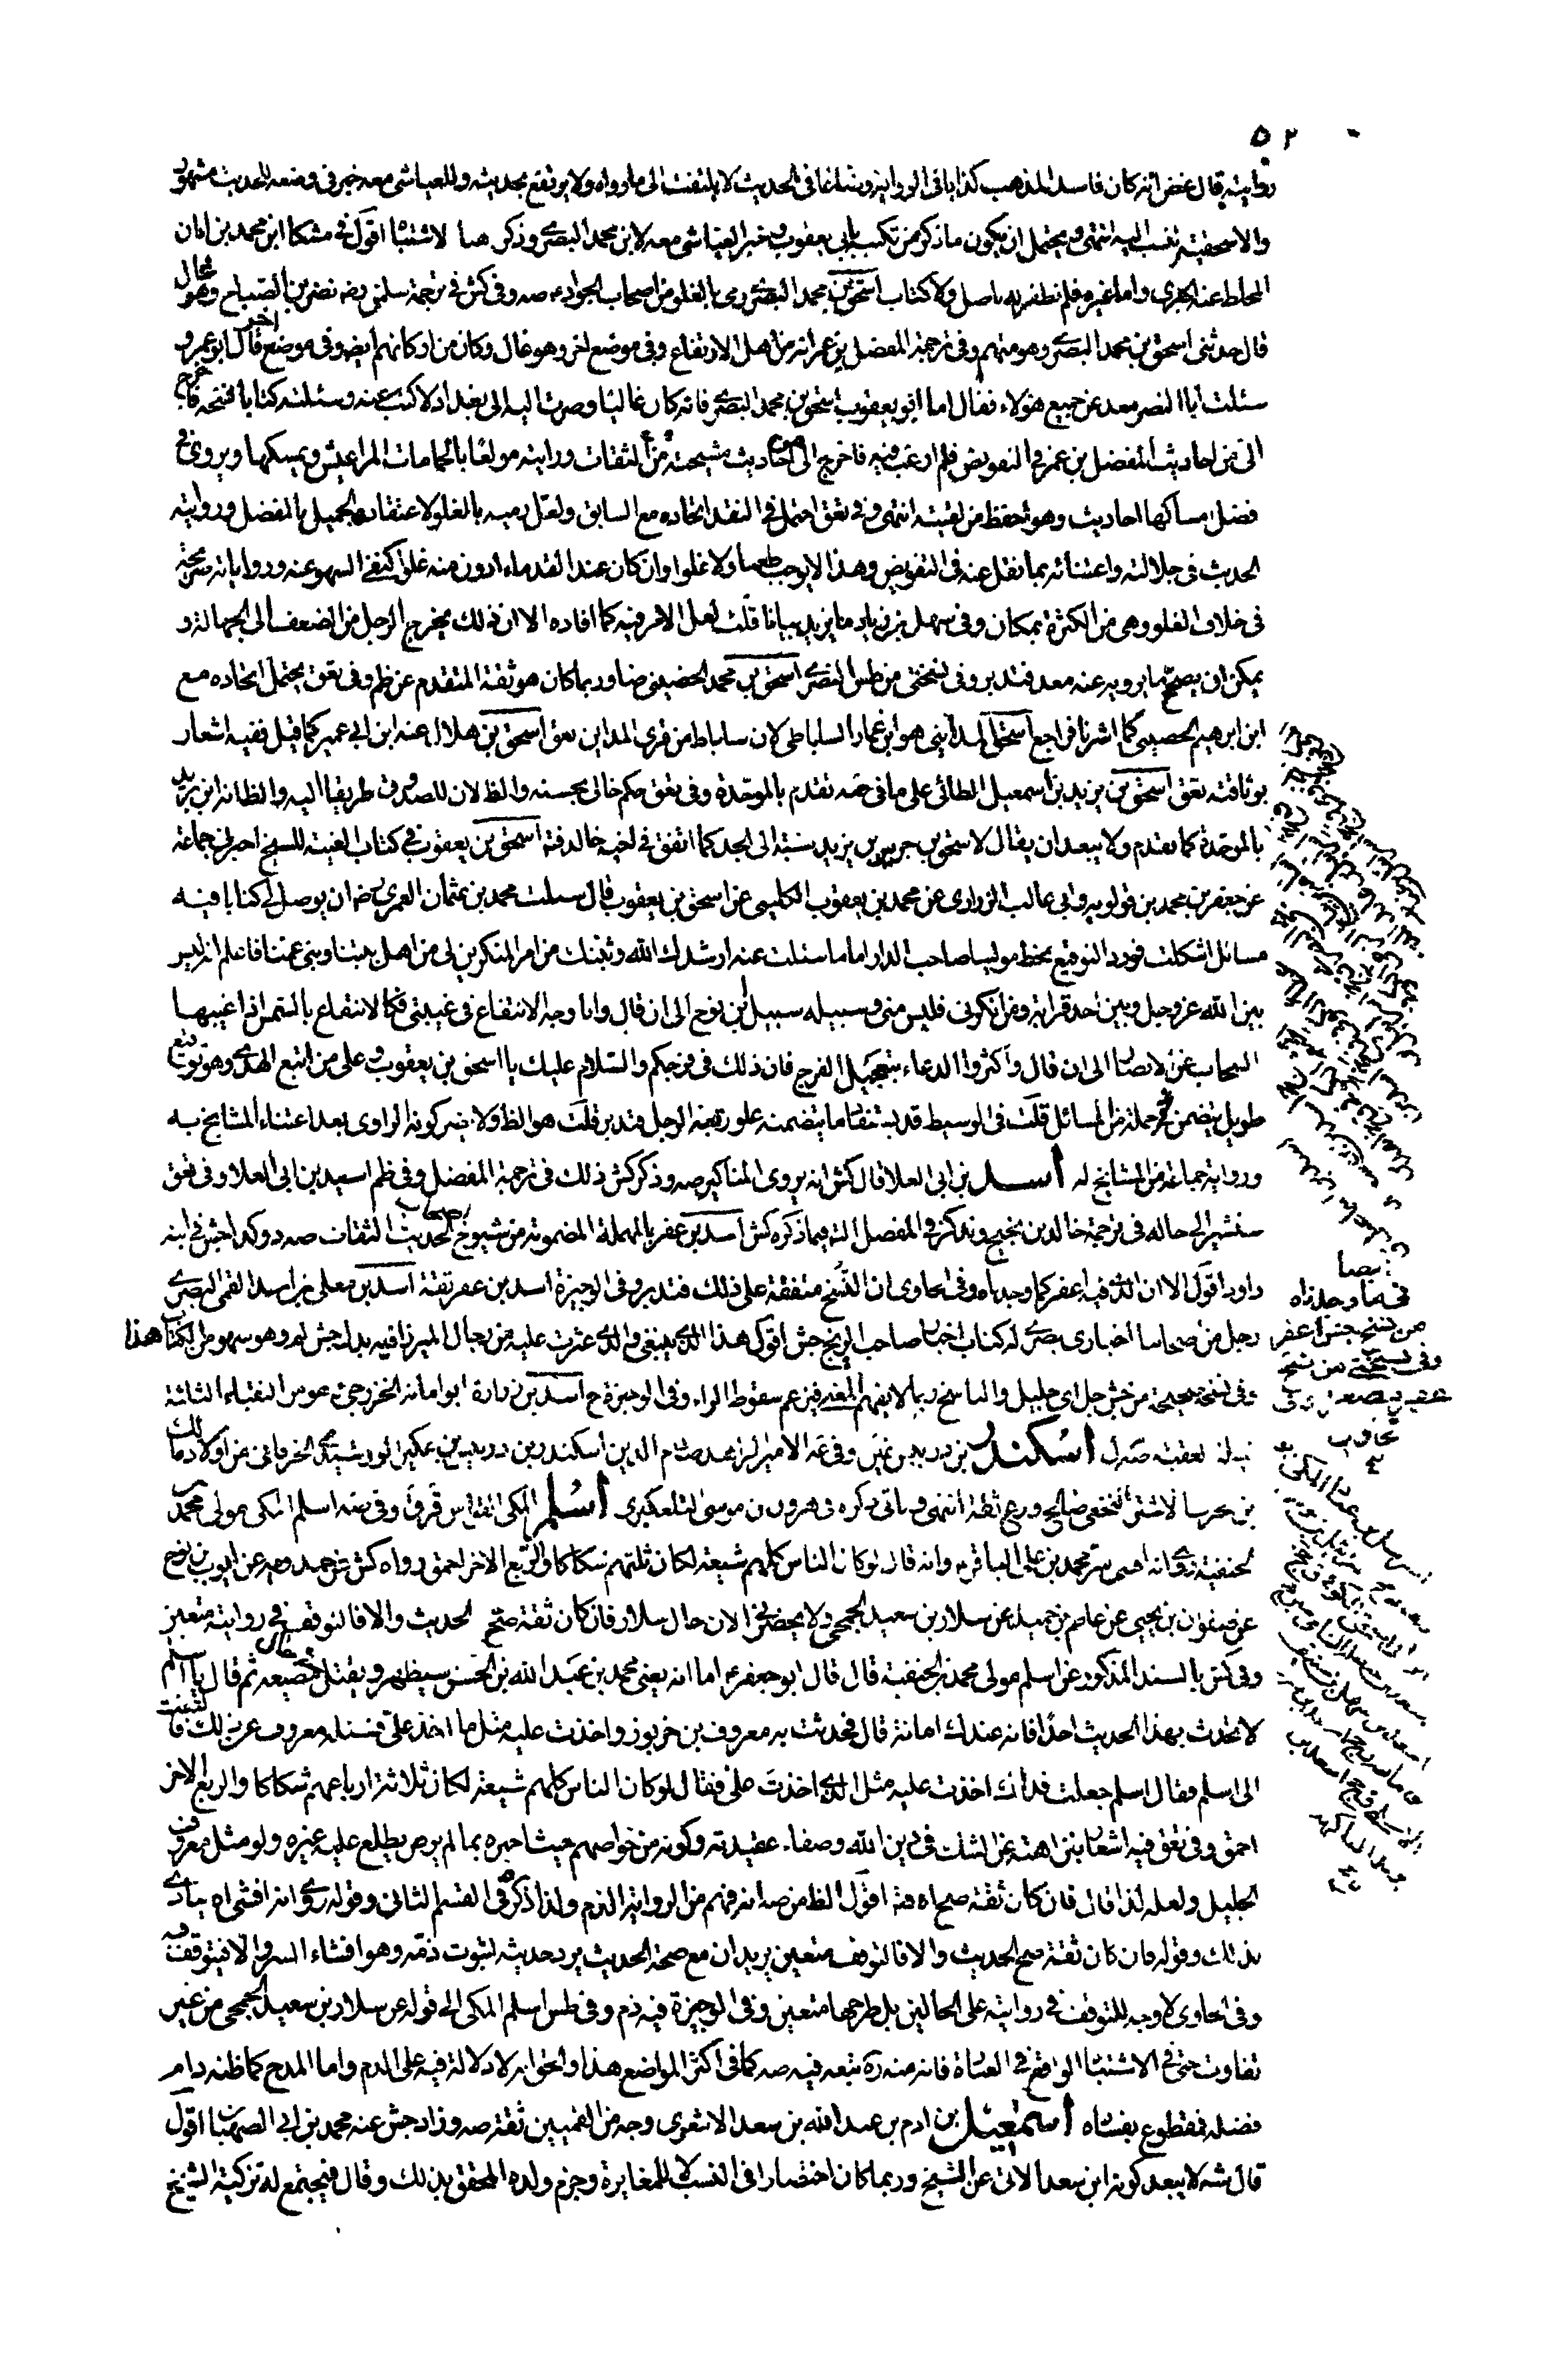 ٥٢
روايته قال غض انه كان فاسد المذهب كذابا في الرواية وضاعا في الحديث لا يلتفت الى ما رواه ولا يرتفع بحديثه وللعياشي معه خبر في وضعه للحديث مشهور
والاسحقية تنسب اليه انتهى ويحتمل ان يكون ما ذكر من تكنيه بابي يعقوب وخبر العياشي معه لابن محمد البصري وذكر هنا لاشتباه اقول في مشكا ابن محمد بن ابان
المخلط عنه الجرمي واما غيره فلم نظفر له باصل ولا كتاب اسحق بن محمد البصري رمى بالغلو من اصحاب الجواد ع صه وفي كش في ترجمة سلمن رضه نصر بن الصباح وهو غال
قال حدثني اسحق بن محمد البصري وهو متهم وفي ترجمة المفضل بن عمر انه من اهل الارتفاع وفي موضع اخر وهو غال وكان من اركانهم ايضا وفي موضع اخر قال ابو عمرو
سئلت ابا النصر محمد عن جميع هؤلاء فقال اما ابو يعقوب اسحق بن محمد البصري فانه كان غاليا وصرت اليه الى بغداد لاكتب عنه وسئلته كتابا انسخه فاخرج
الى من احاديث المفضل بن عمر في التفويض فلم ارغب فيه فاخرج الى احاديث مشيخته من الثقات ورايته مولعا بالحمامات المراعيش ويمسكها ويروى في
فضل امساكها احاديث وهو احفظ من لقيته انتهى وفي تعق احتمل في النقد اتحاده مع السابق ولعل رميه بالغلو لاعتقاده الجميل بالمفضل وروايته
الحديث في جلالته واعتنائه بما نقل عنه في التفويض وهذا لا يوجب طعنا ولا غلوا وان كان عند القدماء ادون منه غلوا كنفي السهو عنه ورواياته صريحة
في خلاف الغلو وهي من الكثرة بمكان وفي سهل بن زياد ما يزيد بيانا قلت لعل الامر فيه كما افاده الا ان ذلك يخرج الرجل من الضعف الى الجهالة و
يمكن ان يصح ما يرويه عنه معد فتدبر وفي نسختي من طس النضري اسحق بن محمد الحضيني ضا وربما كان هو ثقة المتقدم عن ظم وفي تعق يحتمل اتحاده مع
ابن ابرهيم الحصيني كما اشرنا فراجع اسحق المدايني هو ابن عمار الساباطي لان ساباط من قرى المداين تعق اسحق بن هلال عنه ابن ابي عمير كما قيل ففيه اشعار
بوثاقته تعق اسحق بن يزيد بن اسمعيل الطائي على ما في صه تقدم بالموحدة وفي تعق حكم خالي بحسنه والظ لان للصدوق طريقا اليه والظ انه ابن بريد
بالموحدة كما تقدم ولا يبعد ان يقال لاسحق بن جرير بن يزيد نسبة الى الجد كما اتفق في اخيه خالد فته اسحق بن يعقوب في كتاب الغيبة للشيخ اخبرني جماعة
عن جعفر بن محمد بن قولويه وابي غالب الزراري عن محمد بن يعقوب الكليني عن اسحق بن يعقوب قال سئلت محمد بن عثمان العمري رضه ان يوصل لي كتابا فيه
مسائل اشكلت فورد التوقيع بخط مولينا صاحب الدار اما ما سئلت عنه ارشدك الله وثبتك من امر المنكرين لي من اهل بيتنا وبني عمنا فاعلم انه ليس
بين الله عز وجل وبين احد قرابة ومن انكرني فليس مني وسبيله سبيل ابن نوح الى ان قال واما وجه الانتفاع في غيبتي فكالانتفاع بالشمس اذا غيبها
السحاب عن الابصار الى ان قال واكثروا الدعاء بتعجيل الفرج فان ذلك فرجكم والسلام عليك يا اسحق بن يعقوب وعلى من اتبع الهدى وهو توقيع
طويل يتضمن جملة من المسائل قلت في الوسيط قد يستفاد مما يتضمنه علو رتبة الرجل فتدبر قلت هو الظ ولا ضير كونه الراوي بعد اعتناء المشايخ به
ورواية جماعة من المشايخ له اسد بن ابي العلا قال كش انه يروى المناكير صه وذكر كش ذلك في ترجمة المفضل وفي ظم اسيد بن ابي العلا وفي تعق
سنشير الى حاله في ترجمة خالد بن نجيح ونذكر في المفضل الته فيما ذكره كش اسد بن عفر بالمهملة المضمومة من شيوخ اصحاب الحديث الثقات صه د وكذا جش في ابنه
داود اقول الا ان الذي فيه اعفر كما وجدناه وفي الحاوي ان النسخ متفقة على ذلك فتدبر وفي الوجيزة اسد بن عفر ثقة اسد بن معلى بن اسد القمي البصري
رجل من اصحابنا اخباري بصري له كتاب اخبار صاحب الزنج جش اقول هذا الذي ينبغي والذي عثرت عليه من رجال الميرزا فيه بدل جش لم وهو سهو من الكتاب هذا
وفي نسخة صحيحة من جش جل اى جليل والناسخ ربما لا يفهم المغير فيزعم سقوط الراء وفي الوجيزة ح اسد بن زرارة ابو امامة الخزرجي ع هو من النقباء الثلثة
ليلة العقبة صه ل اسكندر بن دربيس بن عكبر وفي عه الامير الزاهد صارم الدين اسكندر بن دربيس بن عكبر الورشيدي الخرقاني من اولاد مالك
بن حرث الاشتر النخعي صالح ورع ثقة انتهى وياتي ذكره في هرون بن موسى التلعكبري اسلم المكي القواس قر ق وفي صه اسلم المكي مولى محمد بن
الحنفية روى انه افشى سر محمد بن علي الباقر ع وانه قال لو كان الناس كلهم شيعة لكان ثلثهم شكاكا والربع الاخر احمق رواه كش عن حمدويه عن ايوب بن نوح
عن صفوان بن يحيى عن عاصم بن حميد عن سلار بن سعيد الجمحي ولا يحضرني الان حال سلار فان كان ثقة صح الحديث والا فالتوقف في روايته متعين
وفي كش بالسند المذكور عن اسلم مولى محمد بن الحنفية قال قال ابو جعفر ع اما انه يعني محمد بن عبد الله بن الحسن سيظهر ويقتل في حال مضيعة ثم قال يا اسلم
لا تحدث بهذا الحديث احدا فانه عندك امانة قال فحدثت به معروف بن خربوذ واخذت عليه مثل ما اخذ علي فسئله معروف عن ذلك فالتفت
الى اسلم فقال اسلم جعلت فداك اخذت عليه مثل الذي اخذت علي فقال لو كان الناس كلهم شيعة لكان ثلاثة ارباعهم شكاكا والربع الاخر
احمق وفي تعق فيه اشعار بنزاهته عن الشك في دين الله وصفاء عقيدته وكونه من خواصهم حيث اخبره بما لم يرض يطلع عليه غيره ولو مثل معروف
الجليل ولعله لذا قال فان كان ثقة صح اه فته اقول الظ من صه انه فهم من الرواية الذم ولذا ذكره في القسم الثاني وقوله روى انه افشى اه ينادي
بذلك وقوله فان كان ثقة صح الحديث والا فالتوقف متعين يريد ان مع صحة الحديث يرد حديثه لثبوت ذمه وهو افشاء السر والا فيتوقف فيه
وفي الحاوي لا وجه للتوقف في روايته على الحالين بل طرحها متعين وفي الوجيزة فيه ذم وفي طس اسلم المكي الى قوله عن سلار بن سعيد الجمحي من غير
تفاوت حتى في الاشتباه الواقع في العبارة فانه منه ره تبعه فيه صه كما في اكثر المواضع هذا والحق انه لا دلالة فيه على الذم واما المدح كما ظنه دام
فضله فمقطوع بفساده اسمعيل بن ادم بن عبد الله بن سعد الاشعري وجه من القميين ثقة صه وزاد جش عنه محمد بن ابي الصهبان اقول
قال شه لا يبعد كونه ابن سعد الاتي عن الشيخ وربما كان اختصارا في النسب لا للمغايرة وجزم ولده المحقق بذلك وقال فيجتمع له تزكية الشيخ
فيما وجدناه
من نسخ جش اعفر
وفي نسختي من نسخة